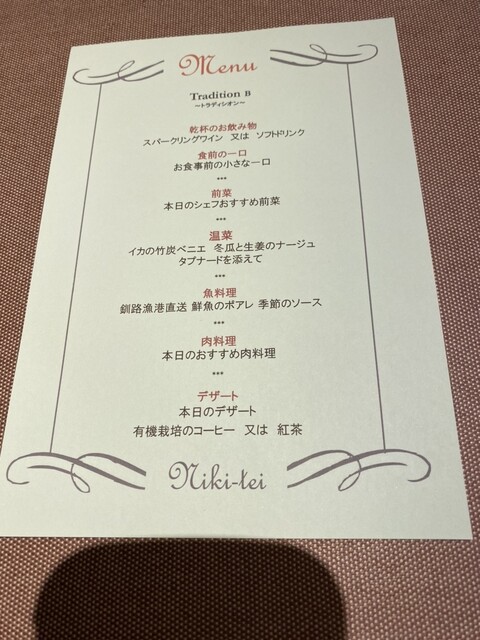 Menu
Tradition B
～トラディシオン～
乾杯のお飲み物
スパークリングワイン 又は ソフトドリンク
食前の一口
お食事前の小さな一口
***
前菜
本日のシェフおすすめ前菜
***
温菜
イカの竹炭ベニエ 冬瓜と生姜のナージュ
タプナードを添えて
***
魚料理
釧路漁港直送 鮮魚のポアレ 季節のソース
***
肉料理
本日のおすすめ肉料理
***
デザート
本日のデザート
有機栽培のコーヒー 又は 紅茶
Niki-tei